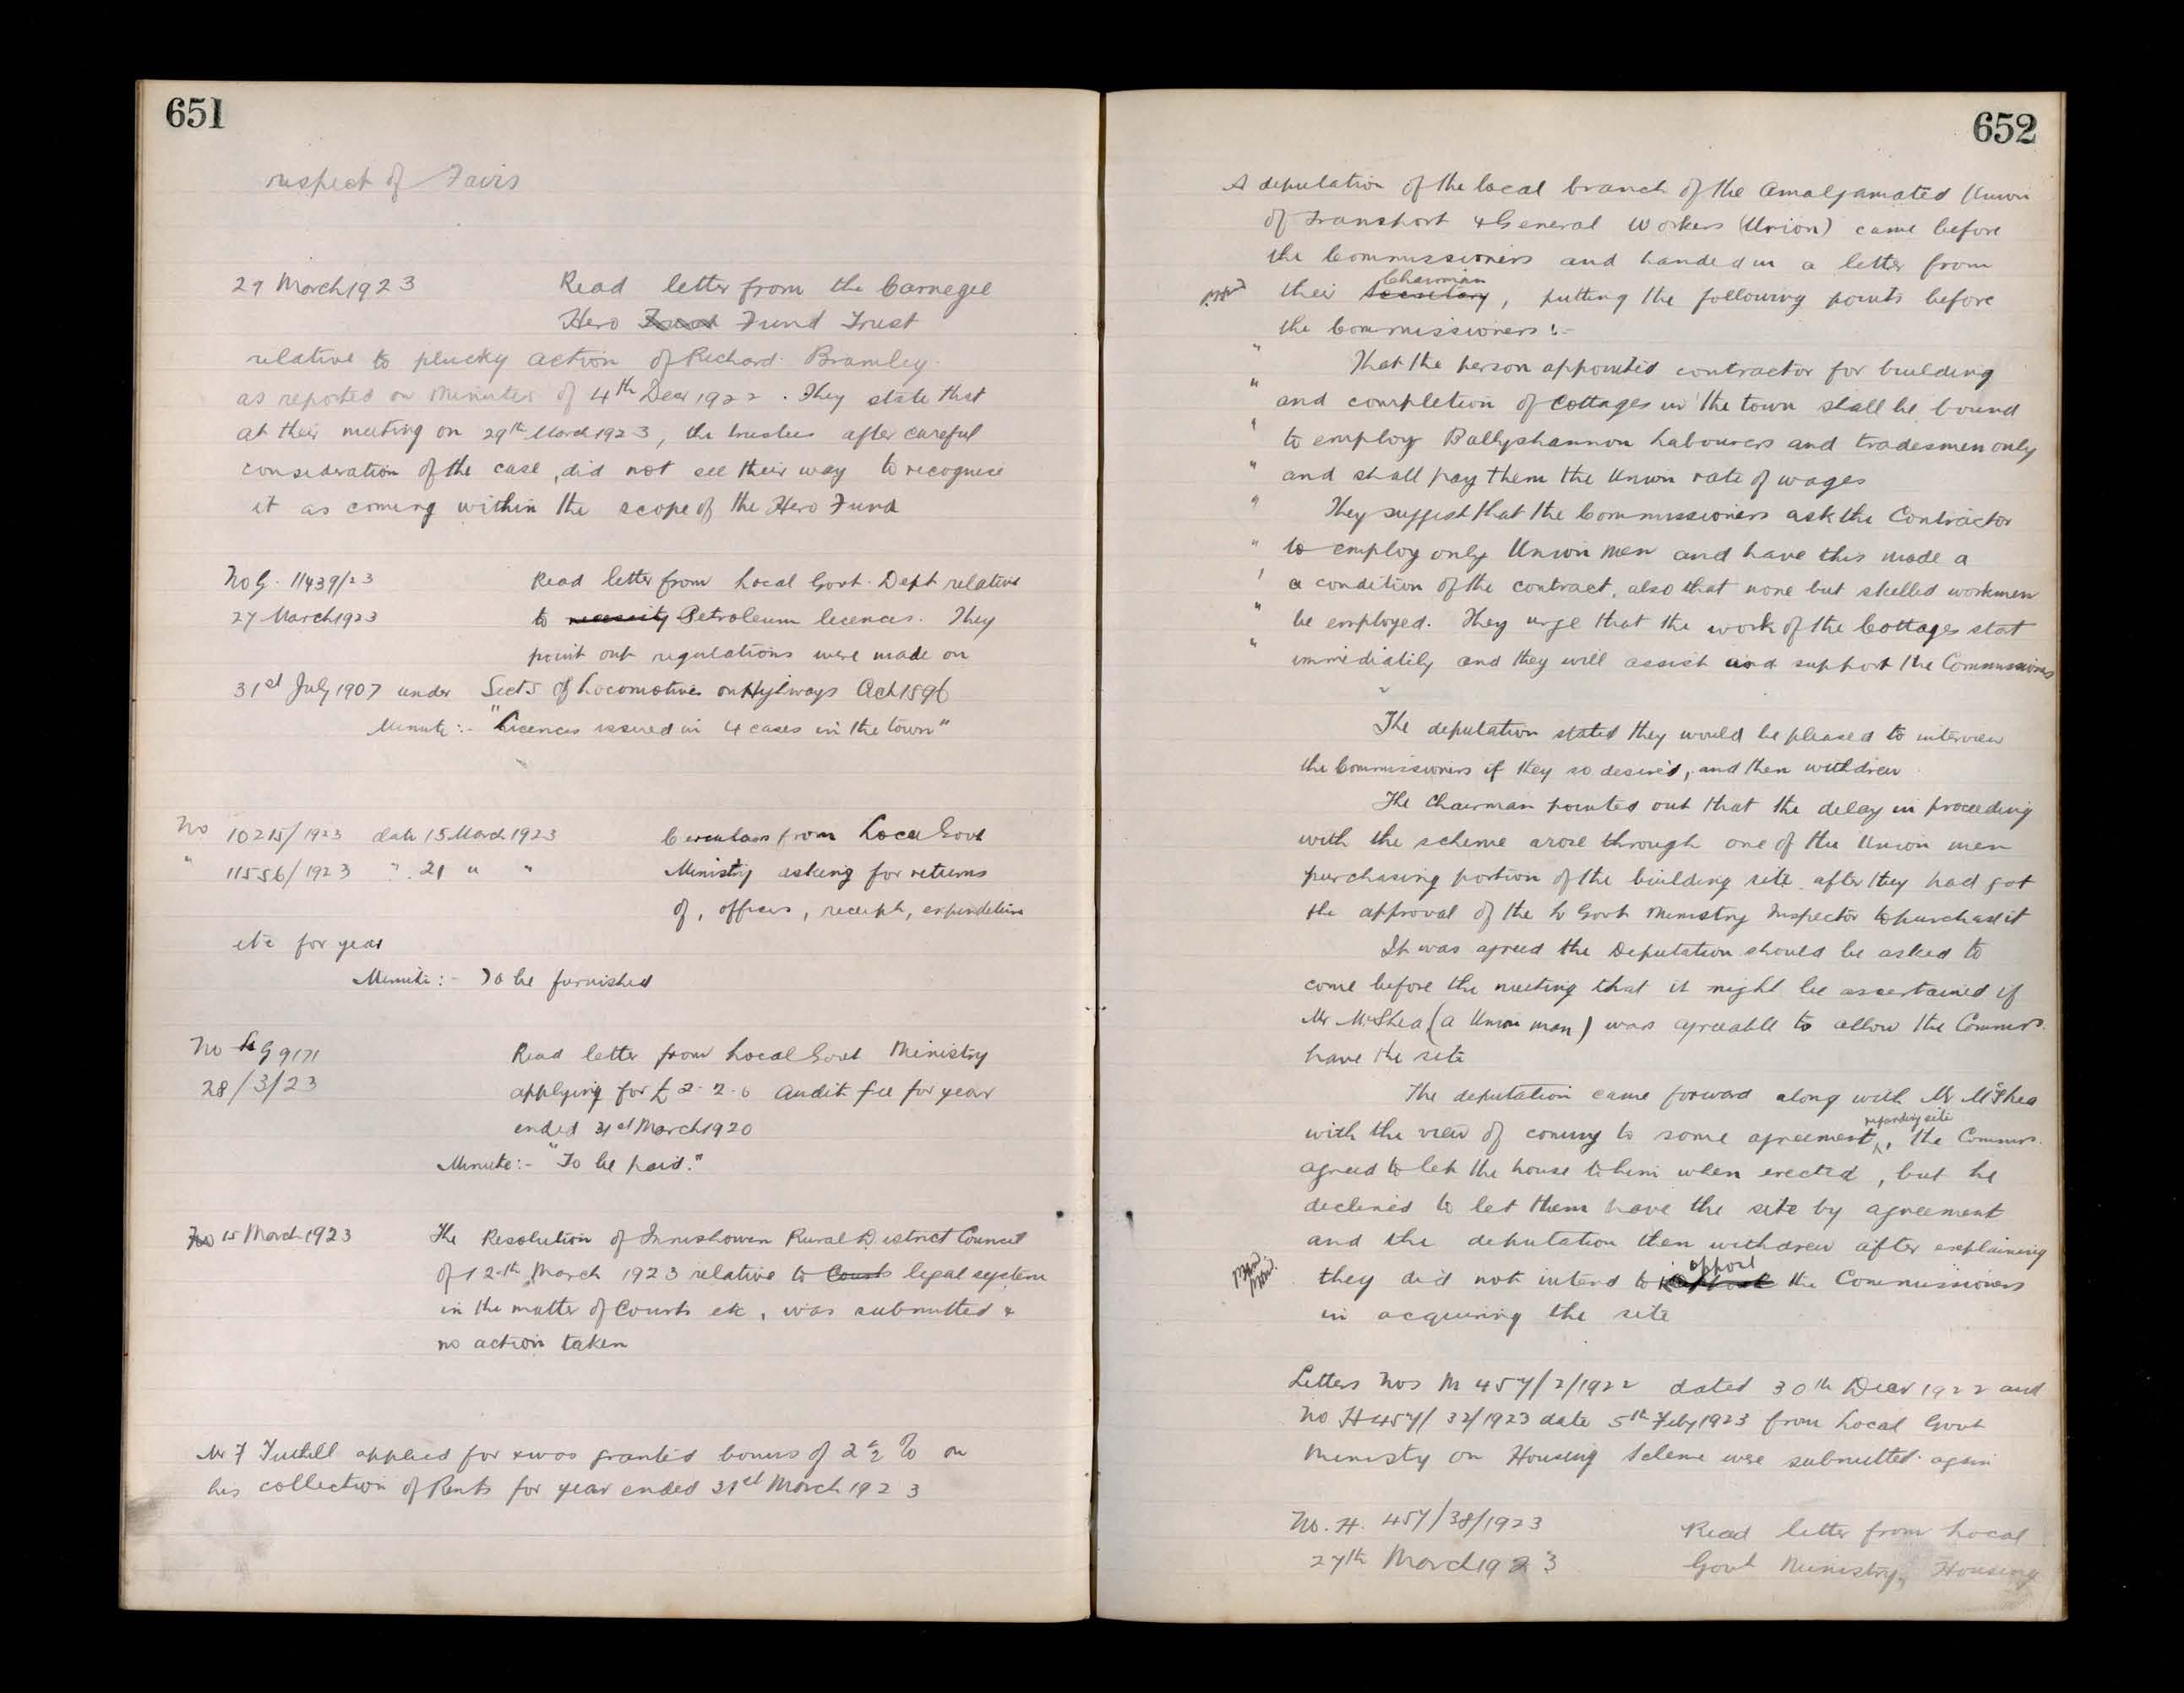 651
respect of Fairs
29 March 1923 Read letter from the Carnegie
Hero Fund Trust
relative to plucky action of Richard Bramley
as reported on Minutes of 4th Decr 1922. They state that
at their meeting on 29th March 1923, the trustees after careful
consideration of the case, did not see their way to recognise
it as coming within the scope of the Hero Fund
No G. 11439/23 Read letter from Local Govt. Dept relative
27 March 1923 to necessity Petroleum licences. They
point out regulations were made on
31st July 1907 under Sect 5 of Locomotives on Highways Act 1896
Minute:- "Licences issued in 4 cases in the town"
No 10215/1923 date 15 March 1923 Circulars from Local Govt
" 11556/1923 " 21 " " Ministry asking for returns
of, officers, receipts, expenditure
etc for year
Minute:- To be furnished
No LG 9171 Read letter from Local Govt Ministry
28/3/23 applying for £2-2-0 Audit fee for year
ended 31st March 1920
Minute:- "To be paid."
No 15 March 1923 The Resolution of Innishowen Rural District Council
of 12th March 1923 relative to Courts legal system
in the matter of Courts etc, was submitted &
no action taken
Mr F Tuthill applied for & was granted bonus of 2½ % on
his collection of Rents for year ended 31st March 1923
652
A deputation of the local branch of the Amalgamated Union
of Transport & General Workers (Union) came before
the Commissioners and handed in a letter from
Chairman
their Secretary, putting the following points before
the Commissioners:-
" That the person appointed contractor for building
" and completion of Cottages in the town shall be bound
" to employ Ballyshannon Labourers and tradesmen only
" and shall pay them the Union rate of wages
" They suggest that the Commissioners ask the Contractor
" to employ only Union men and have this made a
" a condition of the contract, also that none but skilled workmen
" be employed. They urge that the work of the Cottages stat
" immediatily and they will assist and support the Commissioners
"
The deputation stated they would be pleased to interview
the Commissioners if they so desired, and then withdrew
The Chairman pointed out that the delay in proceeding
with the scheme arose through one of the Union men
purchasing portion of the building site after they had got
the approval of the L Govt Ministry Inspector to purchase it
It was agreed the Deputation should be asked to
come before the meeting that it might be ascertained if
Mr McShea (a Union man) was agreeable to allow the Commrs.
have the site
The deputation came forward along with Mr McShea
regarding site
with the view of coming to some agreement, the Commrs.
agreed to let the house to him when erected, but he
declined to let them have the site by agreement
and the deputation then withdrew after explaining
oppose
they did not intend to the Commissioners
in acquiring the site
Letters Nos M 457/2/1922 dated 30th Decr 1922 and
No H 457/32/1923 date 5th Feby 1923 from Local Govt
Ministy on Housing Scheme were submitted again
No. H. 457/38/1923 Read letter from Local
27th March 1923 Govt Ministry, Housing